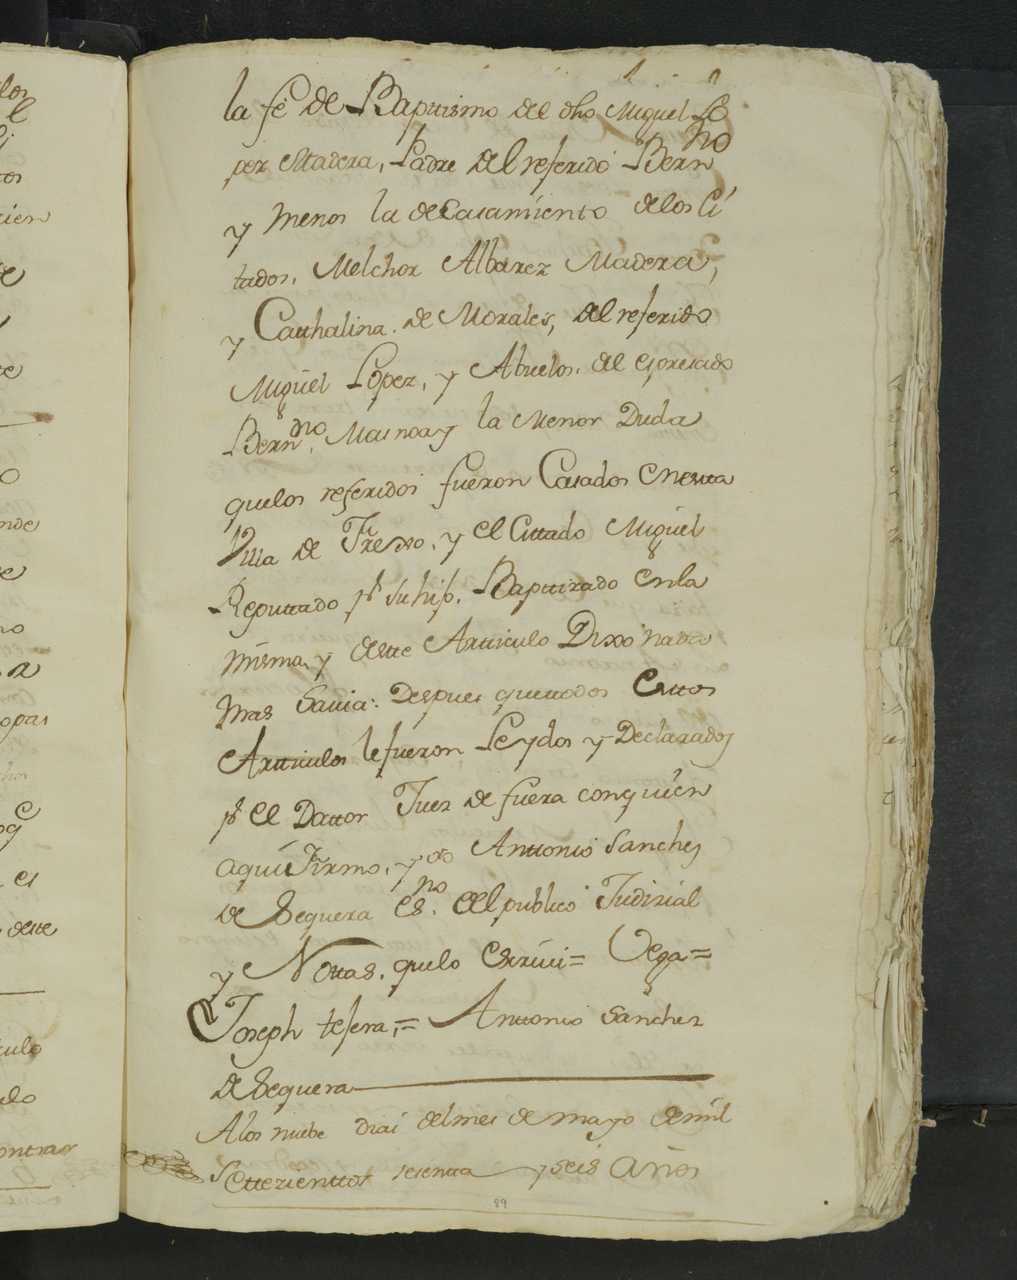 la fe de Baptismo del dho Miguel Lo
pez Madera, Padre del referido Bern^no
y menos la de Casamiento delos Ci
tados, Melchor Albarez Madera,
y Catthalina de Morales, del referido
Miguel Lopez, y Abuelos, del expresado
Bern^dno. Mas no ay la menor Duda
quelos referidos fueron Casados en esta
Villa de Frexno, y el Cittado Miguel
Reputtado p^r su hijo, Bapttizado en la
misma, y deste Artticulo Dixo nada
mas Savia: Despues que ttodos esttos
Artticulos le fueron Leydos y Declarados
p^r el Docttor Juez de fuera con quien
aqui Firmo, y yo Anttonio Sanches
de Sequera es^no. del publico Judizial
y Nottas, que lo escrivi = Vega =
D^r Joseph tesera, = Anttonio Sanchez
de Sequera
A los nuebe dias del mes de mayo de mil
Settezienttos sesentta y seis años
89